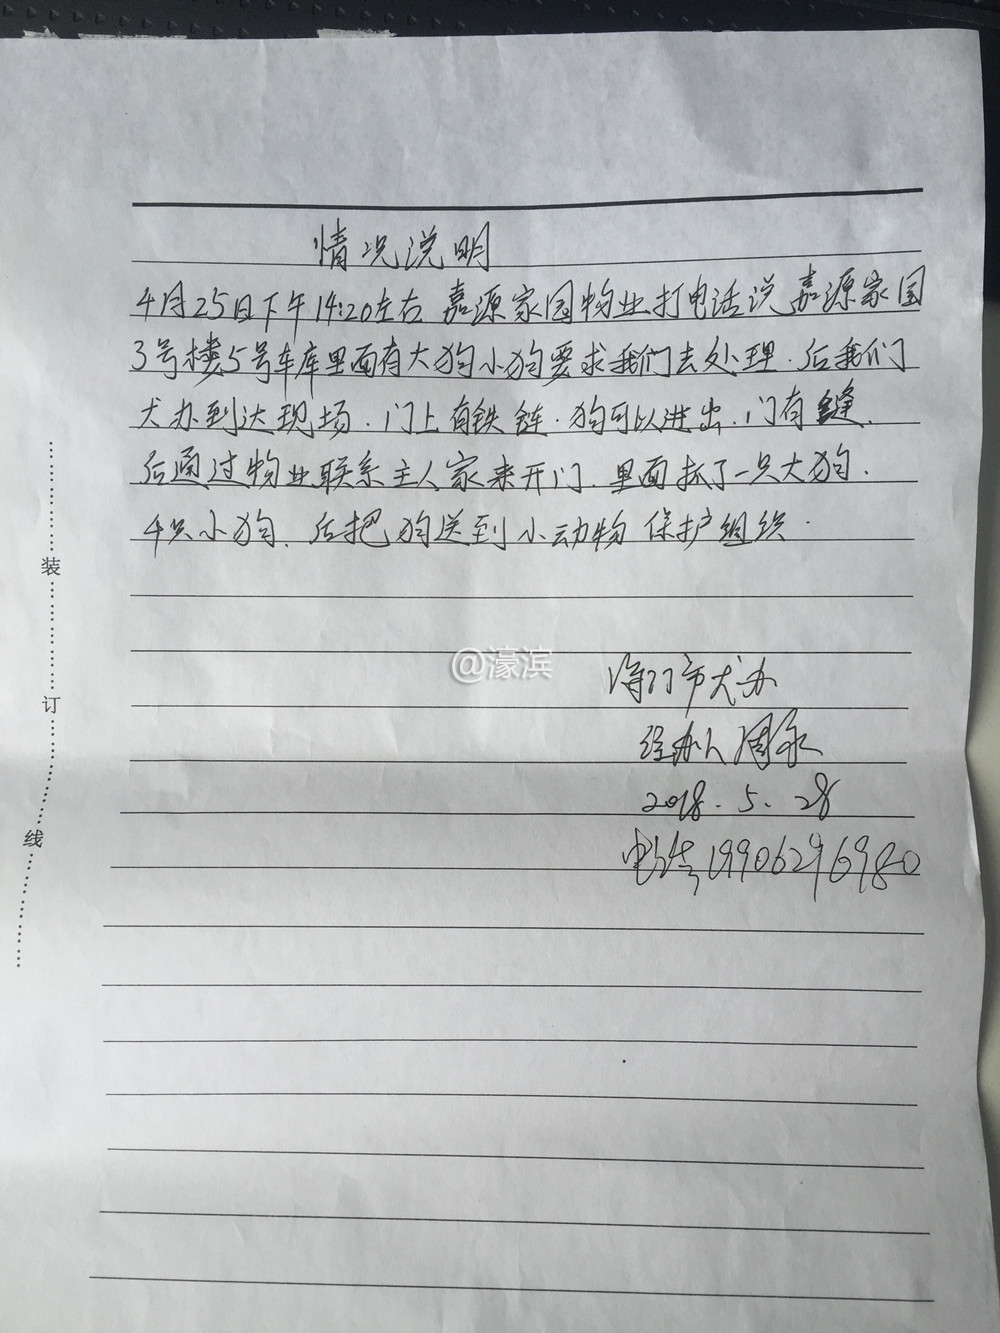 情况说明
4月25日下午14:20左右 嘉源家园物业打电话说嘉源家园
3号楼5号车库里面有大狗小狗要求我们去处理.后我们
犬办到达现场.门上有铁链.狗可以进出.门有缝.
后通过物业联系主人家来开门.里面抓了一只大狗.
4只小狗.后把狗送到小动物保护组织.
装
订
线
@濠滨
海门市犬办
经办人周永
2018.5.28
电话19906296980